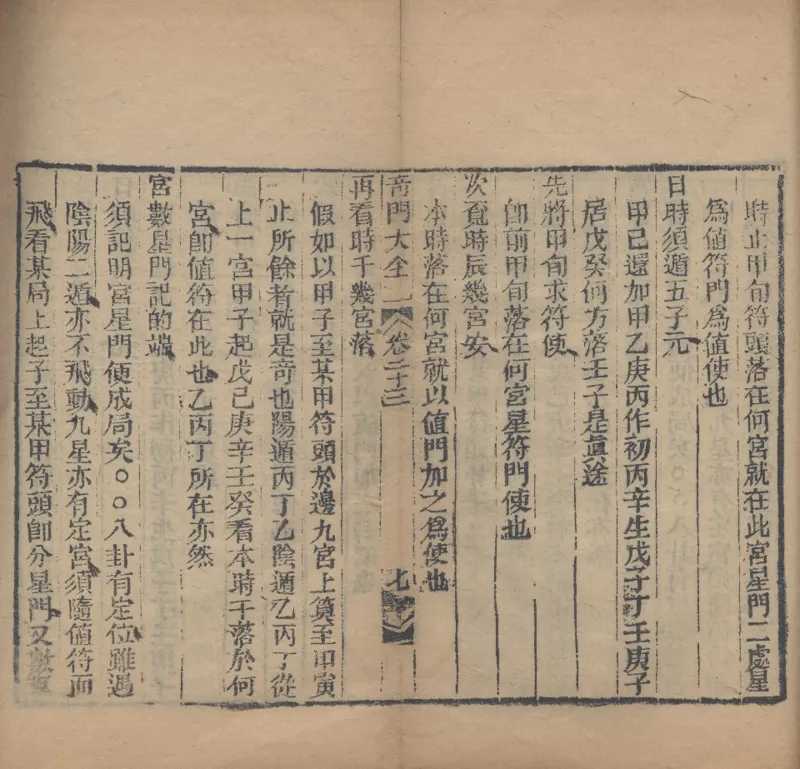 時止甲旬符頭落在何宮就在此宮星門二處星
為値符門為値使也
日時須遁五子元
甲己還加甲乙庚丙作初丙辛生戊子丁壬庚子
居戊癸何方落壬子是眞途
先將甲旬求符使
卽前甲旬落在何宮星符門使也
次覔時辰幾宮安
本時落在何宮就以値門加之爲使也
奇門大全 卷二十三 七
再看時干幾宮落
假如以甲子至某甲符頭於邊九宮上算至甲寅
止所餘者就是奇也陽遁丙丁乙陰遁乙丙丁從
上一宮甲子起戊己庚辛壬癸看本時干落於何
宮卽値符在此也乙丙丁所在亦然
宮數星門記的端
須記明宮星門便成局矣○○八卦有定位雖遇
陰陽二遁亦不飛動九星亦有定宮須隨値符而
飛看某局上起子至某甲符頭卽分星門又數